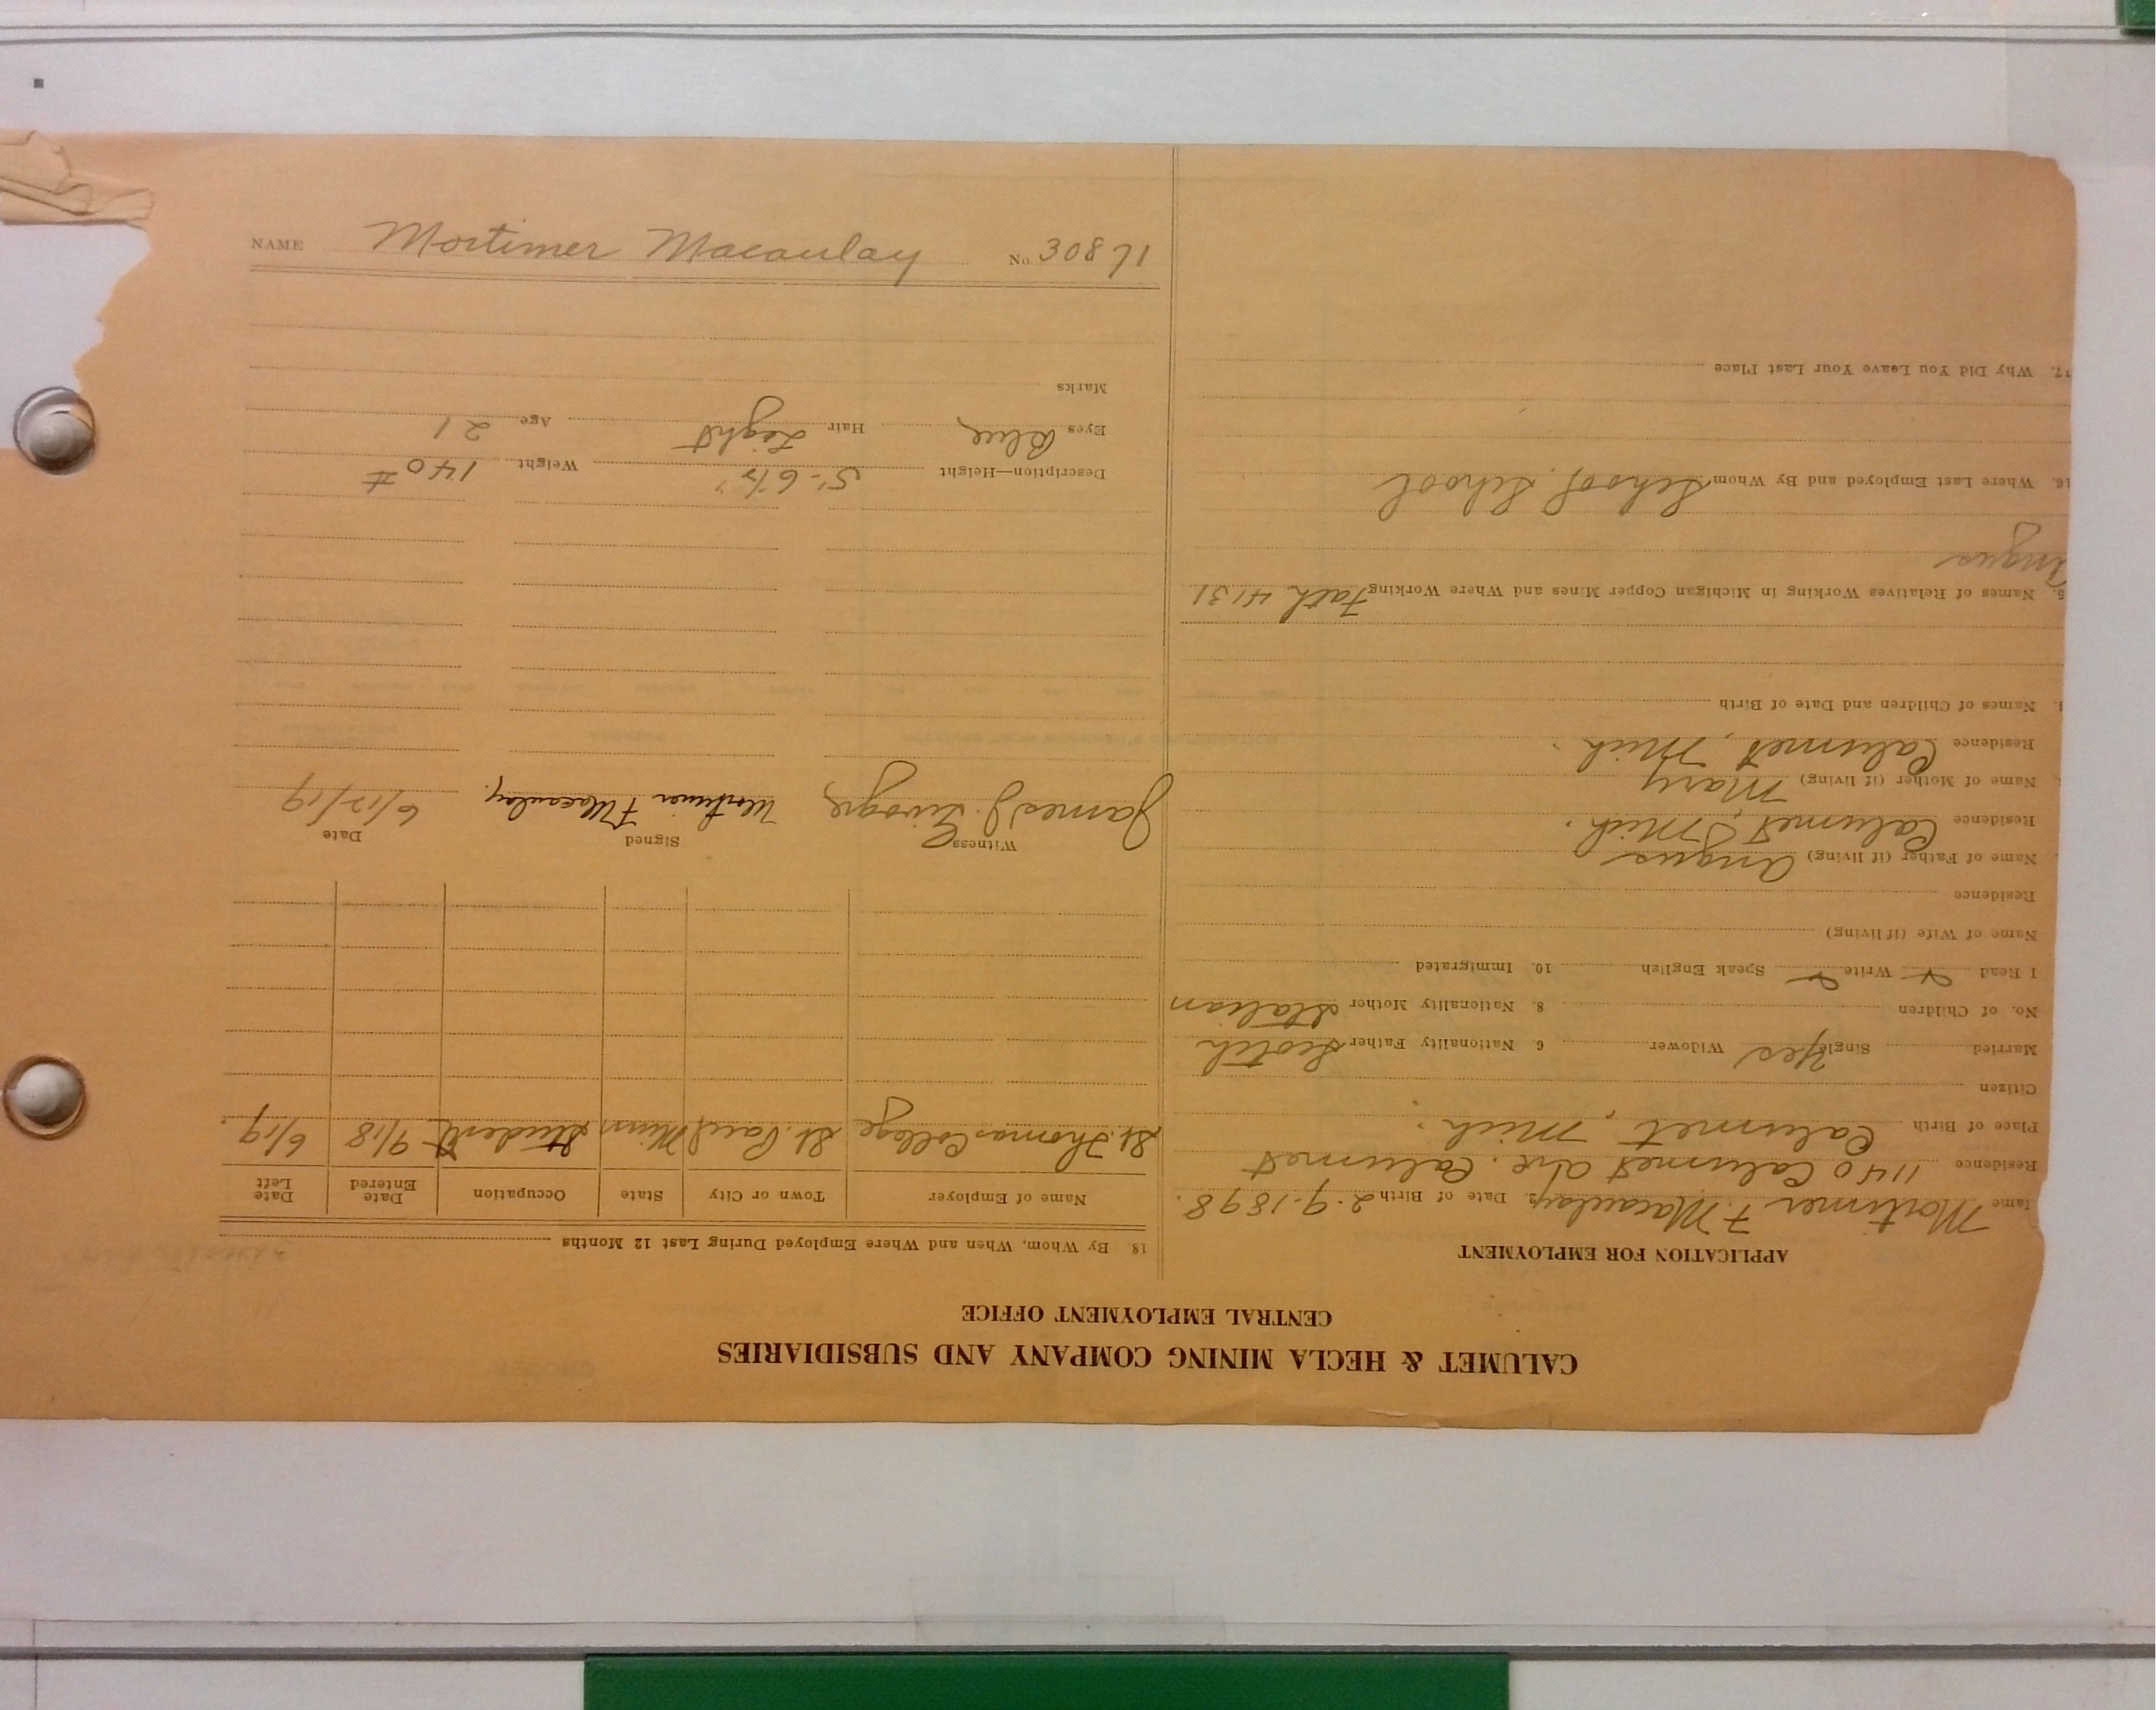 CALUMET & HECLA MINING COMPANY AND SUBSIDIARIES
CENTRAL EMPLOYMENT OFFICE
APPLICATION FOR EMPLOYMENT
Name Mortimer F. Macaulay 2. Date of Birth 2-9-1898.
Residence 1140 Calumet Ave. Calumet
Place of Birth Calumet, Mich.
Citizen
Married Single Yes Widower 6. Nationality Father Scotch
No. of Children 8. Nationality Mother Italian
I Read Write Speak English 10. Immigrated
Name of Wife (if living)
Residence
Name of Father (if living) Angus
Residence Calumet, Mich.
Name of Mother (if living) Mary
Residence Calumet, Mich.
Names of Children and Date of Birth
5. Names of Relatives Working in Michigan Copper Mines and Where Working Fath 4131
Angus
16. Where Last Employed and By Whom School. School
17. Why Did You Leave Your Last Place
18. By Whom, When and Where Employed During Last 12 Months
Name of Employer Town or City State Occupation Date Entered Date Left
St. Thomas College St. Paul Minn Student 9/18 6/19.
Witness Signed Date
James J. Mortimer F Macaulay. 6/12/19
Description—Height 5'-6½" Weight 140 #
Eyes Blue Hair Light Age 21
Marks
NAME Mortimer Macaulay No. 30871